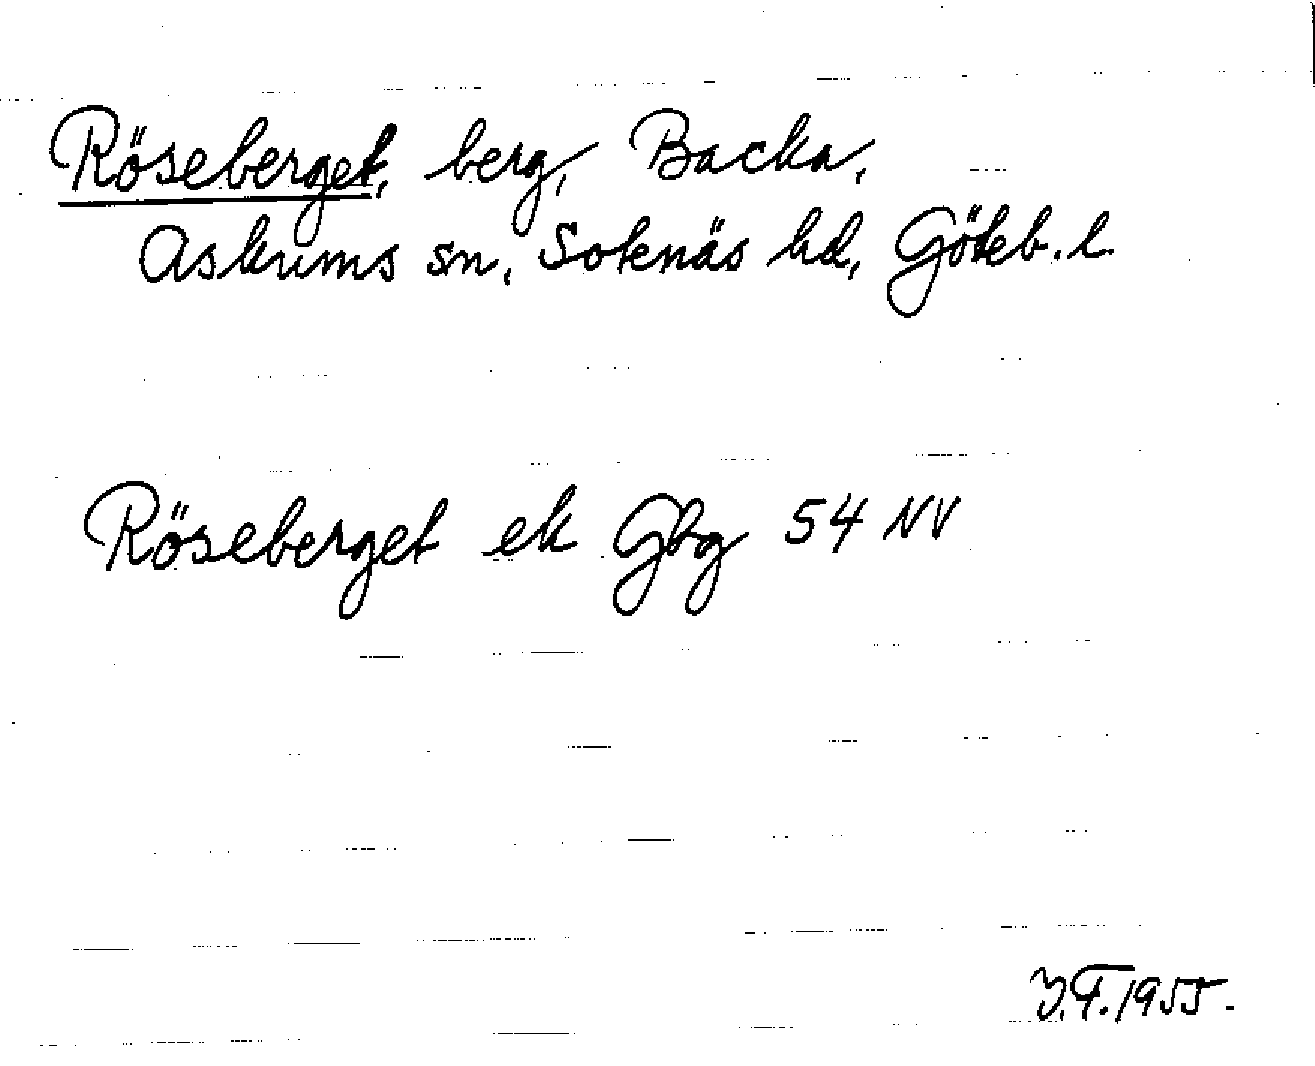 Röseberget, berg, Backa,
Askums sn, Sotenäs hd, Göteb. l.
Röseberget ek Gbg 54 NV
Y.F. 1955.